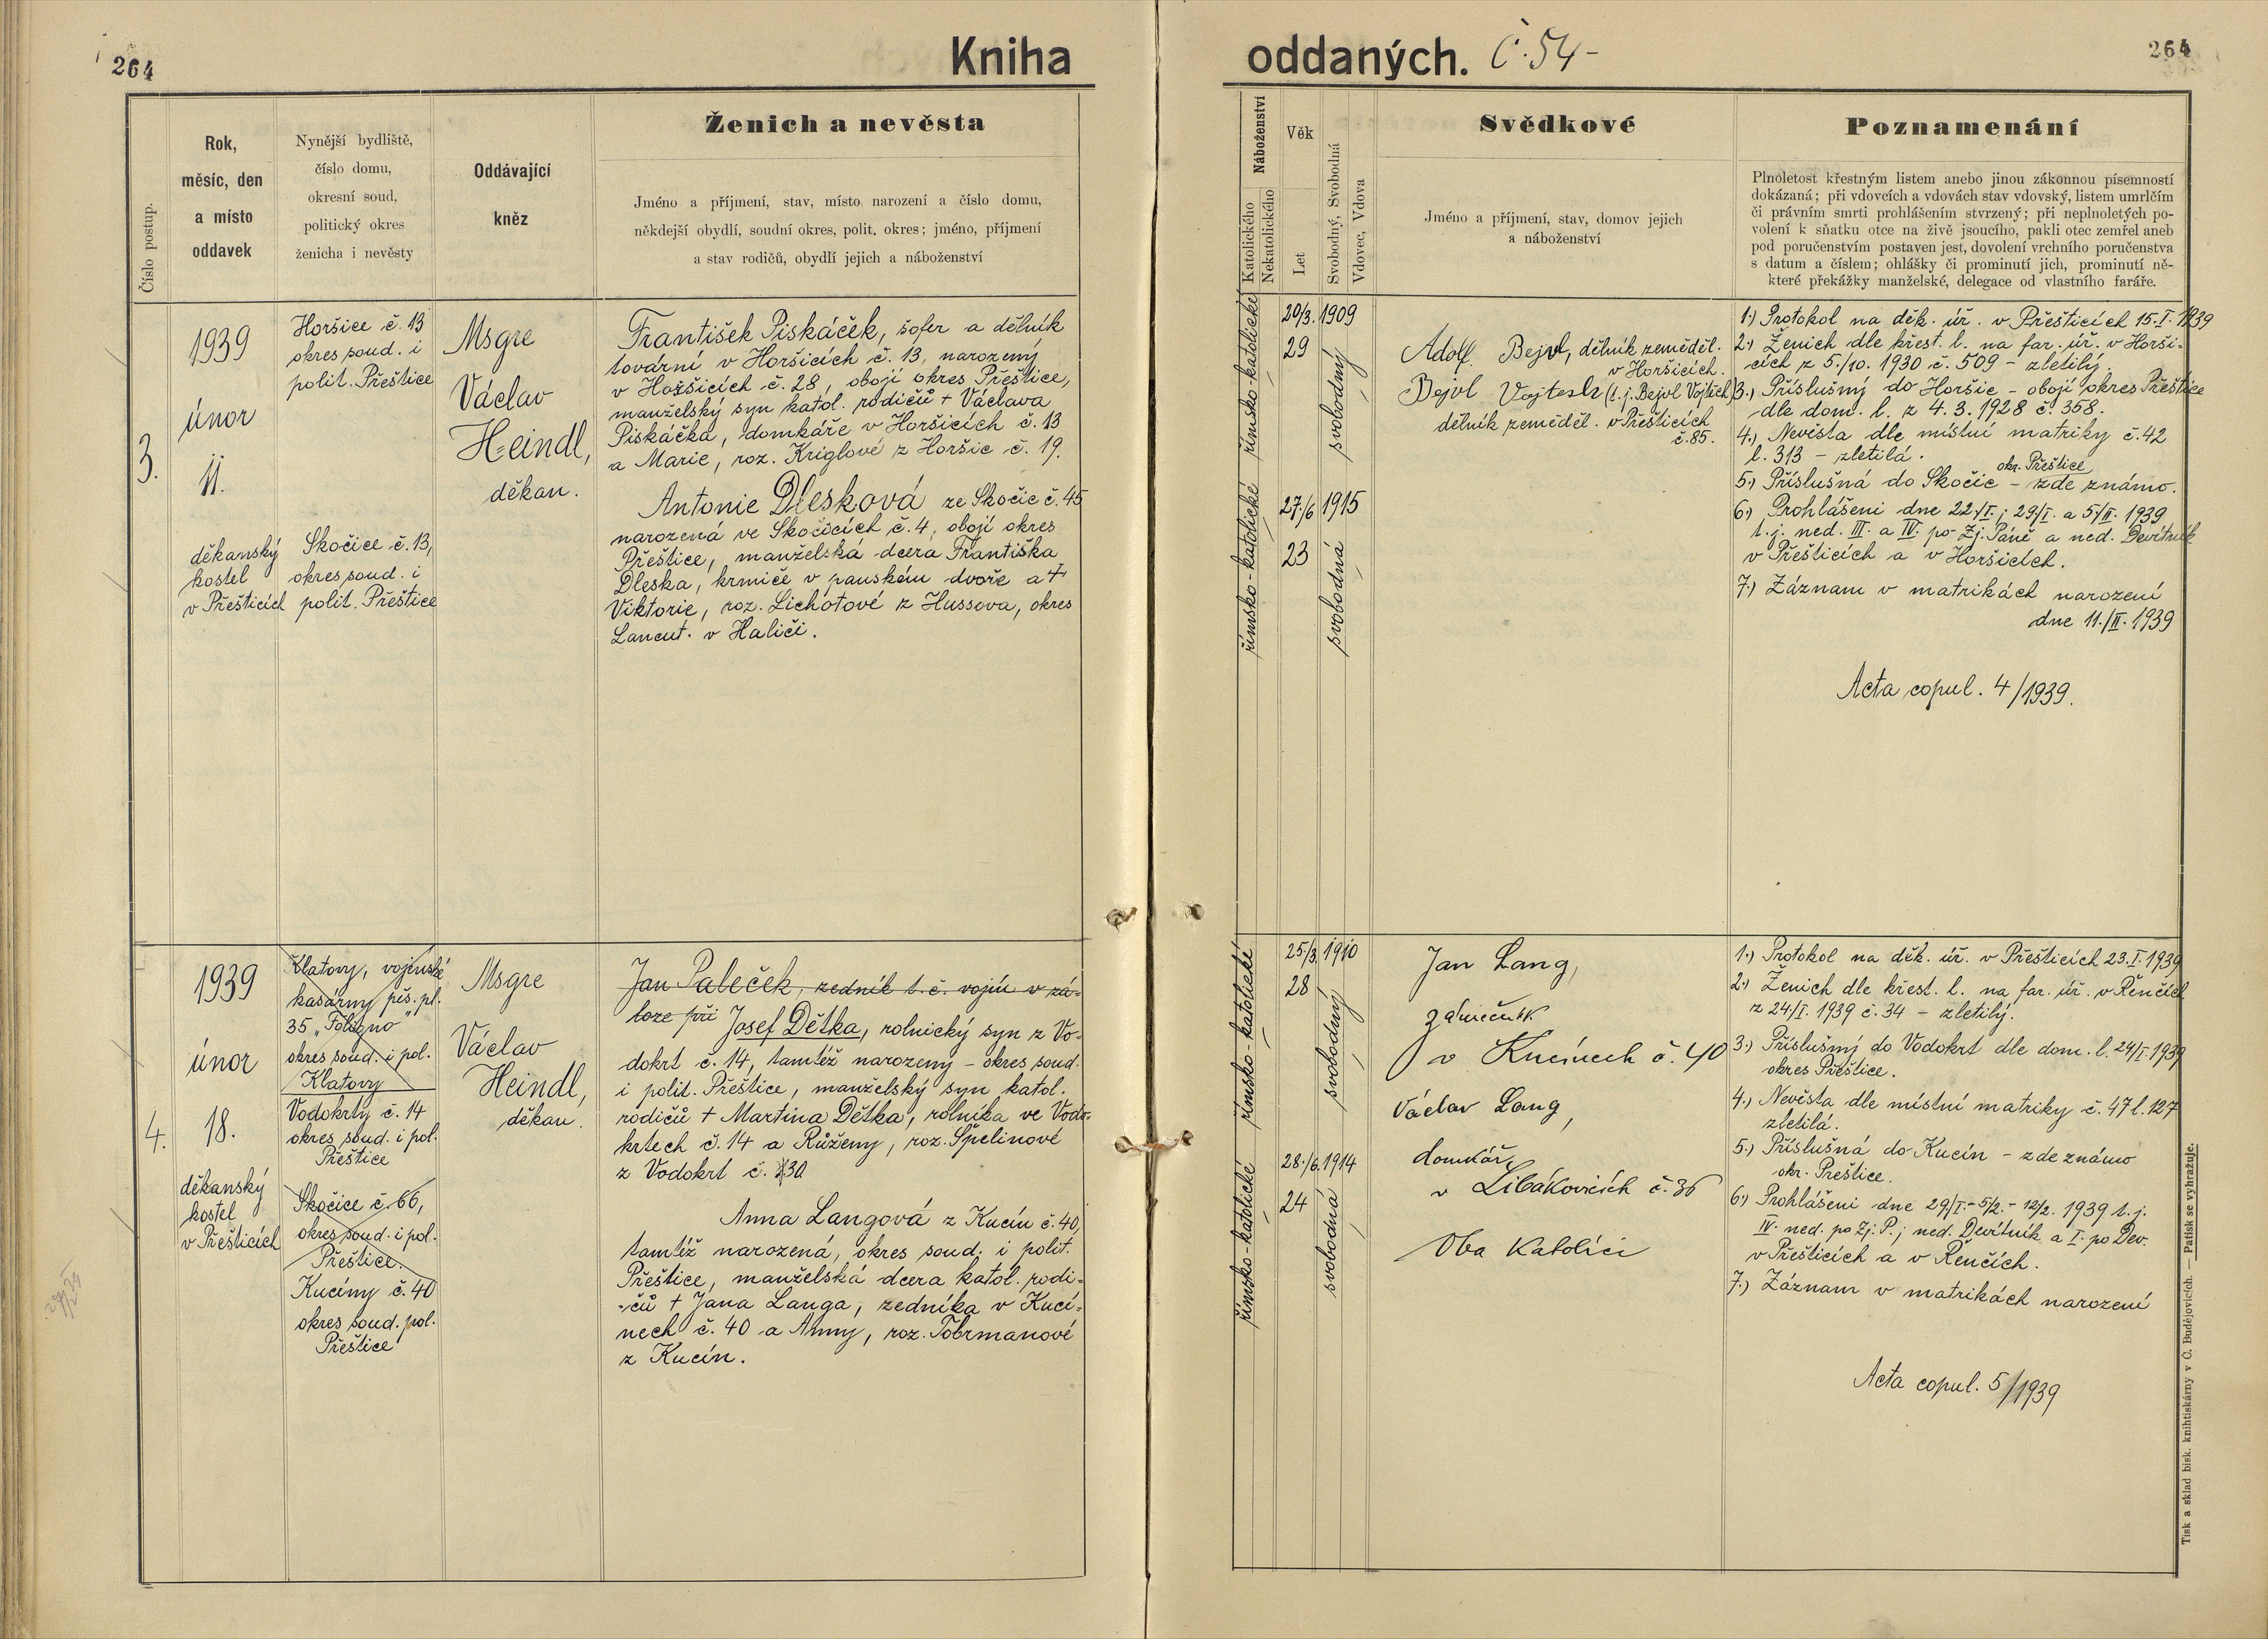 264
Kniha
oddaných.
Č. 54-
264
Číslo postup.
Rok,
měsíc, den
a místo
oddavek
Nynější bydliště,
číslo domu,
okresní soud,
politický okres
ženicha i nevěsty
Oddávající
kněz
Ženich a nevěsta
Jméno a příjmení, stav, místo narození a číslo domu,
někdejší obydlí, soudní okres, polit. okres; jméno, příjmení
a stav rodičů, obydlí jejich a náboženství
Náboženství
Katolického
Nekatolického
Věk
Let
Svobodný, Svobodná
Vdovec, Vdova
Svědkové
Jméno a příjmení, stav, domov jejich
a náboženství
Poznamenání
Plnoletost křestným listem anebo jinou zákonnou písemností
dokázaná; při vdovcích a vdovách stav vdovský, listem umrlčím
či právním smrti prohlášením stvrzený; při neplnoletých po-
volení k sňatku otce na živě jsoucího, pakli otec zemřel aneb
pod poručenstvím postaven jest, dovolení vrchního poručenstva
s datum a číslem; ohlášky či prominutí jich, prominutí ně-
které překážky manželské, delegace od vlastního faráře.
3.
1939
únor
11.
děkanský
kostel
v Přešticích
Horšice č. 13
okres soud. i
polit. Přeštice
Skočice č. 13,
okres soud. i
polit. Přeštice
Msgre
Václav
Heindl,
děkan.
František Piskáček, šofer a dělník
tovární v Horšicích č. 13, narozený
v Horšicích č. 28, obojí okres Přeštice,
manželský syn katol. rodičů + Václava
Piskáčka, domkáře v Horšicích č. 13
a Marie, roz. Kriglové z Horšic č. 19.
Antonie Dlesková ze Skočic č. 45
narozená ve Skočicích č. 4, obojí okres
Přeštice, manželská dcera Františka
Dleska, krmiče v panském dvoře a +
Viktorie, roz. Lichotové z Hussova, okres
Lancut. v Haliči.
římsko-katolické
římsko-katolické
20/3. 1909
29
svobodný
27./6 1915
23
svobodná
Adolf Bejvl, dělník zeměděl.
v Horšicích.
Bejvl Vojtech (t. j. Bejvl Vojtěch)
dělník zeměděl. v Přešticích
č. 85.
1.) Protokol na děk. úř. v Přešticích 15. I. 1939
2.) Ženich dle křest. l. na far. úř. v Horši-
cích z 5./10. 1930 č. 509 - zletilý
3.) Příslušný do Horšic - obojí okres Přeštice
dle dom. l. z 4. 3. 1928 č. 358.
4.) Nevěsta dle místní matriky č. 42
l. 313 - zletilá.
okr. Přeštice
5.) Příslušná do Skočic - zde známo.
6.) Prohlášeni dne 22./I.; 29/I. a 5/II. 1939
t. j. ned. III. a IV. po Zj. Páně a ned. Devítník
v Přešticích a v Horšicích.
7.) Záznam v matrikách narození
dne 11./II. 1939
Acta copul. 4/1939.
4.
1939
únor
18.
děkanský
kostel
v Přešticích
Klatovy, vojenské
kasárny pěš. pl.
35 „Foligno"
okres soud. i pol.
Klatovy
Vodokrty č. 14
okres soud. i pol.
Přeštice
Skočice č. 66,
okres soud. i pol.
Přeštice.
Kucíny č. 40
okres soud. pol.
Přeštice
Msgre
Václav
Heindl,
děkan.
Jan Paleček, zedník t. č. vojín v zá-
loze při Josef Dětka, rolnický syn z Vo-
dokrt č. 14, tamtéž narozeny - okres soud.
i polit. Přeštice, manželský syn katol.
rodičů + Martina Dětka, rolníka ve Vodo-
krtech č. 14 a Růženy, roz. Špelinové
z Vodokrt č. 30
Anna Langová z Kucín č. 40,
tamtéž narozená, okres soud. i polit.
Přeštice, manželská dcera katol. rodi-
čů + Jana Langa, zedníka v Kucí-
nech č. 40 a Anny, roz. Tobrmanové
z Kucín.
římsko-katolické
římsko-katolické
25./3. 1910
28
svobodný
28./6. 1914
24
svobodná
Jan Lang,
zámečník
v Kucínech č. 40
Václav Lang,
domkář
v Libákovicích č. 36
Oba katolíci
1.) Protokol na děk. úř. v Přešticích 23. I. 1939
2.) Ženich dle křest. l. na far. úř. v Řenčích
z 24/I. 1939 č. 34 - zletilý.
3.) Příslušný do Vodokrt dle dom. l. 24/I. 1939
okres Přeštice.
4.) Nevěsta dle místní matriky č. 47 l. 127
zletilá.
5.) Příslušná do Kucín - zde známo
okr. Přeštice.
6.) Prohlášeni dne 29/I. - 5/2. - 12/2. 1939 t. j.
IV. ned. po Zj. P.; ned. Devítník a I. po Dev.
v Přešticích a v Řenčích.
7.) Záznam v matrikách narození
Acta copul. 5/1939
Tisk a sklad bisk. knihtiskárny v Č. Budějovicích. — Patisk se vyhražuje.